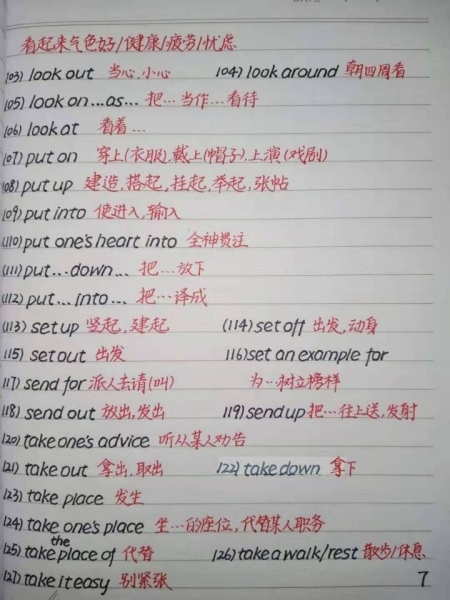 看起来气色好/健康/疲劳/忧虑
103) look out 当心,小心 104) look around 朝四周看
105) look on...as... 把…当作…看待
106) look at 看着…
107) put on 穿上(衣服),戴上(帽子),上演(戏剧)
108) put up 建造,搭起,挂起,举起,张帖
109) put into 使进入,输入
(110) put one's heart into 全神贯注
(111) put...down... 把…放下
(112) put...into... 把…译成
(113) set up 竖起,建起 (114) set off 出发,动身
115) set out 出发 116) set an example for
117) send for 派人去请(叫) 为…树立榜样
118) send out 放出,发出 119) send up 把…往上送,发射
120) take one's advice 听从某人劝告
121) take out 拿出,取出 122) take down 拿下
123) take place 发生
124) take one's place 坐…的座位,代替某人职务
125) take the place of 代替 126) take a walk/rest 散步/休息
127) take it easy 别紧张 7